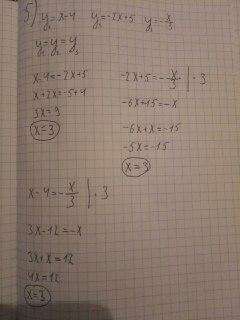 5) y₁=x-4 y₂=-2x+5 y₃=-x/3
y₁=y₂=y₃
x-4=-2x+5
x+2x=5+4
3x=9
x=3
-2x+5=-x/3 | · 3
-6x+15=-x
-6x+x=-15
-5x=-15
x=3
x-4=-x/3 | · 3
3x-12=-x
3x+x=12
4x=12
x=3